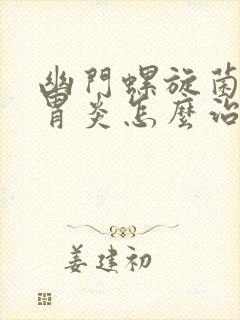 幽門螺旋菌
胃炎怎麼治
姜建初